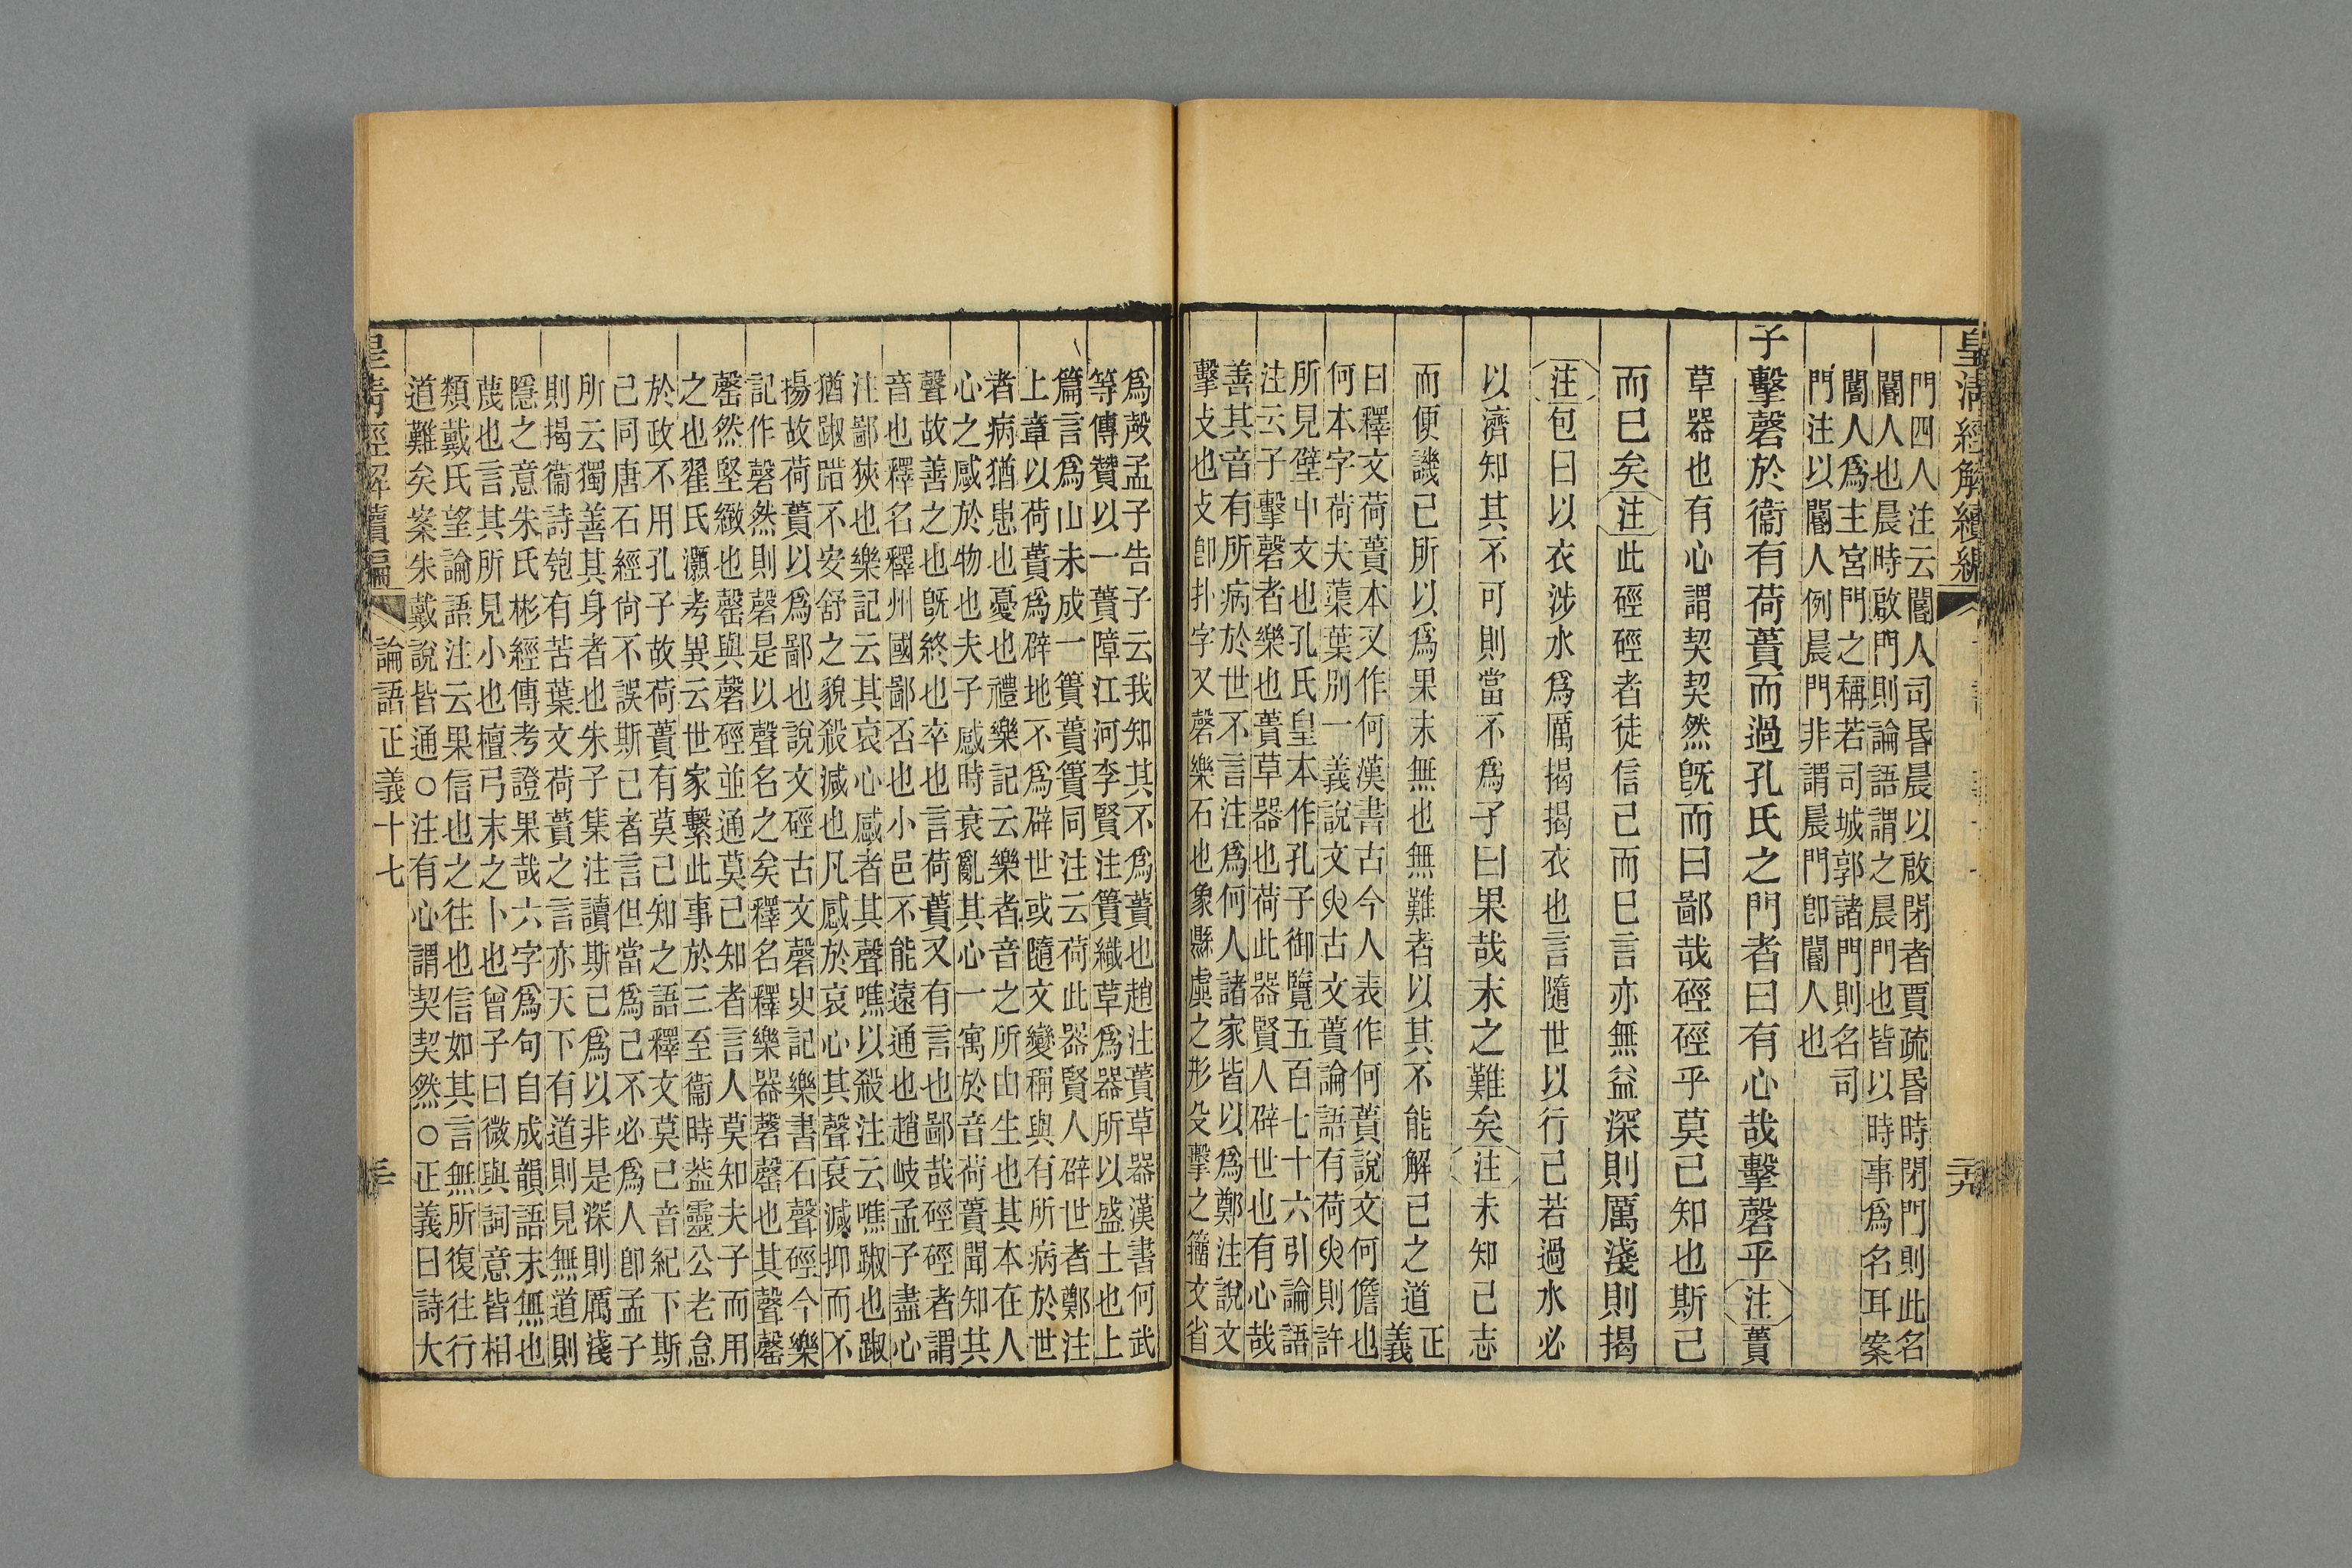 皇清經解續編
門四人注云閽人司昏晨以啟閉者賈疏昏時閉門則此名
閽人也晨時啟門則論語謂之晨門也皆以時事爲名耳案
閽人爲主宮門之稱若司城郭諸門則名司
門注以閽人例晨門非謂晨門卽閽人也
子擊磬於衞有荷蕢而過孔氏之門者曰有心哉擊磬乎注蕢
草器也有心謂契契然旣而曰鄙哉硜硜乎莫己知也斯己
而巳矣注此硜硜者徒信己而巳言亦無益深則厲淺則揭
注包曰以衣涉水爲厲揭揭衣也言隨世以行己若過水必
以濟知其不可則當不爲子曰果哉末之難矣注未知己志
而便譏己所以爲果末無也無難者以其不能解己之道正義
曰釋文荷蕢本又作何漢書古今人表作何蕢說文何儋也
何本字荷夫蕖葉別一義說文臾古文蕢論語有荷臾則許
所見壁中文也孔氏皇本作孔子御覽五百七十六引論語
注云子擊磬者樂也蕢草器也荷此器賢人辟世也有心哉
善其音有所病於世不言注爲何人諸家皆以爲鄭注說文
擊攴也攴卽扑字又磬樂石也象縣虡之形殳擊之籀文省
三九
爲殸孟子告子云我知其不爲蕢也趙注蕢草器漢書何武
等傳贊以一蕢障江河李賢注簣織草爲器所以盛土也上
篇言爲山未成一簣蕢簣同注云荷此器賢人辟世者鄭注
上章以荷蕢爲辟地不爲辟世或隨文變稱與有所病於世
者病猶患也憂也禮樂記云樂者音之所由生也其本在人
心之感於物也夫子感時衰亂其心一寓於音荷蕢聞知其
聲故善之也旣終也卒也言荷蕢又有言也鄙哉硜硜者謂
音也釋名釋州國鄙否也小邑不能遠通也趙岐孟子盡心
注鄙狹也樂記云其哀心感者其聲噍以殺注云噍踧也踧
猶踧踖不安舒之貌殺減也凡感於哀心其聲衰減抑而不
揚故荷蕢以爲鄙也說文硜古文磬史記樂書石聲硜今樂
記作磬然則磬是以聲名之矣釋名釋樂器磬罄也其聲罄
罄然堅緻也罄與磬硜並通莫己知者言人莫知夫子而用
之也翟氏灝考異云世家繫此事於三至衞時葢靈公老怠
於政不用孔子故荷蕢有莫己知之語釋文莫己音紀下斯
己同唐石經尙不誤斯己者言但當爲己不必爲人卽孟子
所云獨善其身者也朱子集注讀斯己爲以非是深則厲淺
則揭衞詩匏有苦葉文荷蕢之言亦天下有道則見無道則
隱之意朱氏彬經傳考證果哉六字爲句自成韻語末無也
蔑也言其所見小也檀弓末之卜也曾子曰微與詞意皆相
類戴氏望論語注云果信也之往也信如其言無所復往行
道難矣案朱戴說皆通○注有心謂契契然○正義曰詩大
皇清經解續編
論語正義十七
三